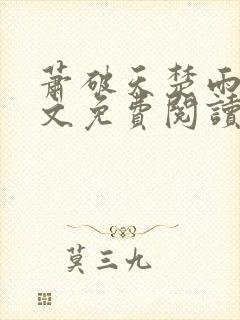 蕭破天楚雨
文免費閱讀
莫三九